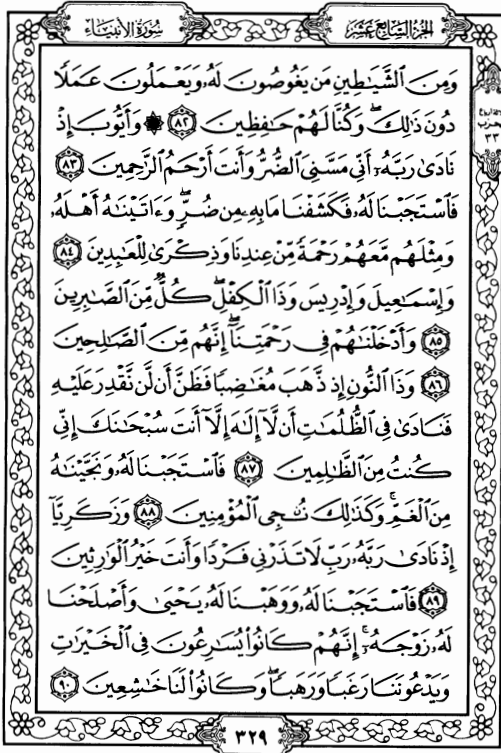 الجزء السابع عشر
سورة الأنبياء
وَمِنَ الشَّيَاطِينِ مَن يَغُوصُونَ لَهُۥ وَيَعْمَلُونَ عَمَلًا
دُونَ ذَٰلِكَ ۖ وَكُنَّا لَهُمْ حَافِظِينَ ٨٢ ۞ وَأَيُّوبَ إِذْ
نَادَىٰ رَبَّهُۥٓ أَنِّي مَسَّنِيَ الضُّرُّ وَأَنتَ أَرْحَمُ الرَّاحِمِينَ ٨٣
فَاسْتَجَبْنَا لَهُۥ فَكَشَفْنَا مَا بِهِۦ مِن ضُرٍّ ۖ وَءَاتَيْنَاهُ أَهْلَهُۥ
وَمِثْلَهُم مَّعَهُمْ رَحْمَةً مِّنْ عِندِنَا وَذِكْرَىٰ لِلْعَابِدِينَ ٨٤
وَإِسْمَاعِيلَ وَإِدْرِيسَ وَذَا الْكِفْلِ ۖ كُلٌّ مِّنَ الصَّابِرِينَ
٨٥ وَأَدْخَلْنَاهُمْ فِي رَحْمَتِنَا ۖ إِنَّهُم مِّنَ الصَّالِحِينَ
٨٦ وَذَا النُّونِ إِذ ذَّهَبَ مُغَاضِبًا فَظَنَّ أَن لَّن نَّقْدِرَ عَلَيْهِ
فَنَادَىٰ فِي الظُّلُمَاتِ أَن لَّآ إِلَٰهَ إِلَّآ أَنتَ سُبْحَانَكَ إِنِّي
كُنتُ مِنَ الظَّالِمِينَ ٨٧ فَاسْتَجَبْنَا لَهُۥ وَنَجَّيْنَاهُ
مِنَ الْغَمِّ ۚ وَكَذَٰلِكَ نُنجِي الْمُؤْمِنِينَ ٨٨ وَزَكَرِيَّآ
إِذْ نَادَىٰ رَبَّهُۥ رَبِّ لَا تَذَرْنِي فَرْدًا وَأَنتَ خَيْرُ الْوَارِثِينَ
٨٩ فَاسْتَجَبْنَا لَهُۥ وَوَهَبْنَا لَهُۥ يَحْيَىٰ وَأَصْلَحْنَا
لَهُۥ زَوْجَهُۥٓ ۚ إِنَّهُمْ كَانُوا۟ يُسَارِعُونَ فِي الْخَيْرَاتِ
وَيَدْعُونَنَا رَغَبًا وَرَهَبًا ۖ وَكَانُوا۟ لَنَا خَاشِعِينَ ٩٠
حزب
٣٣
٣٢٩